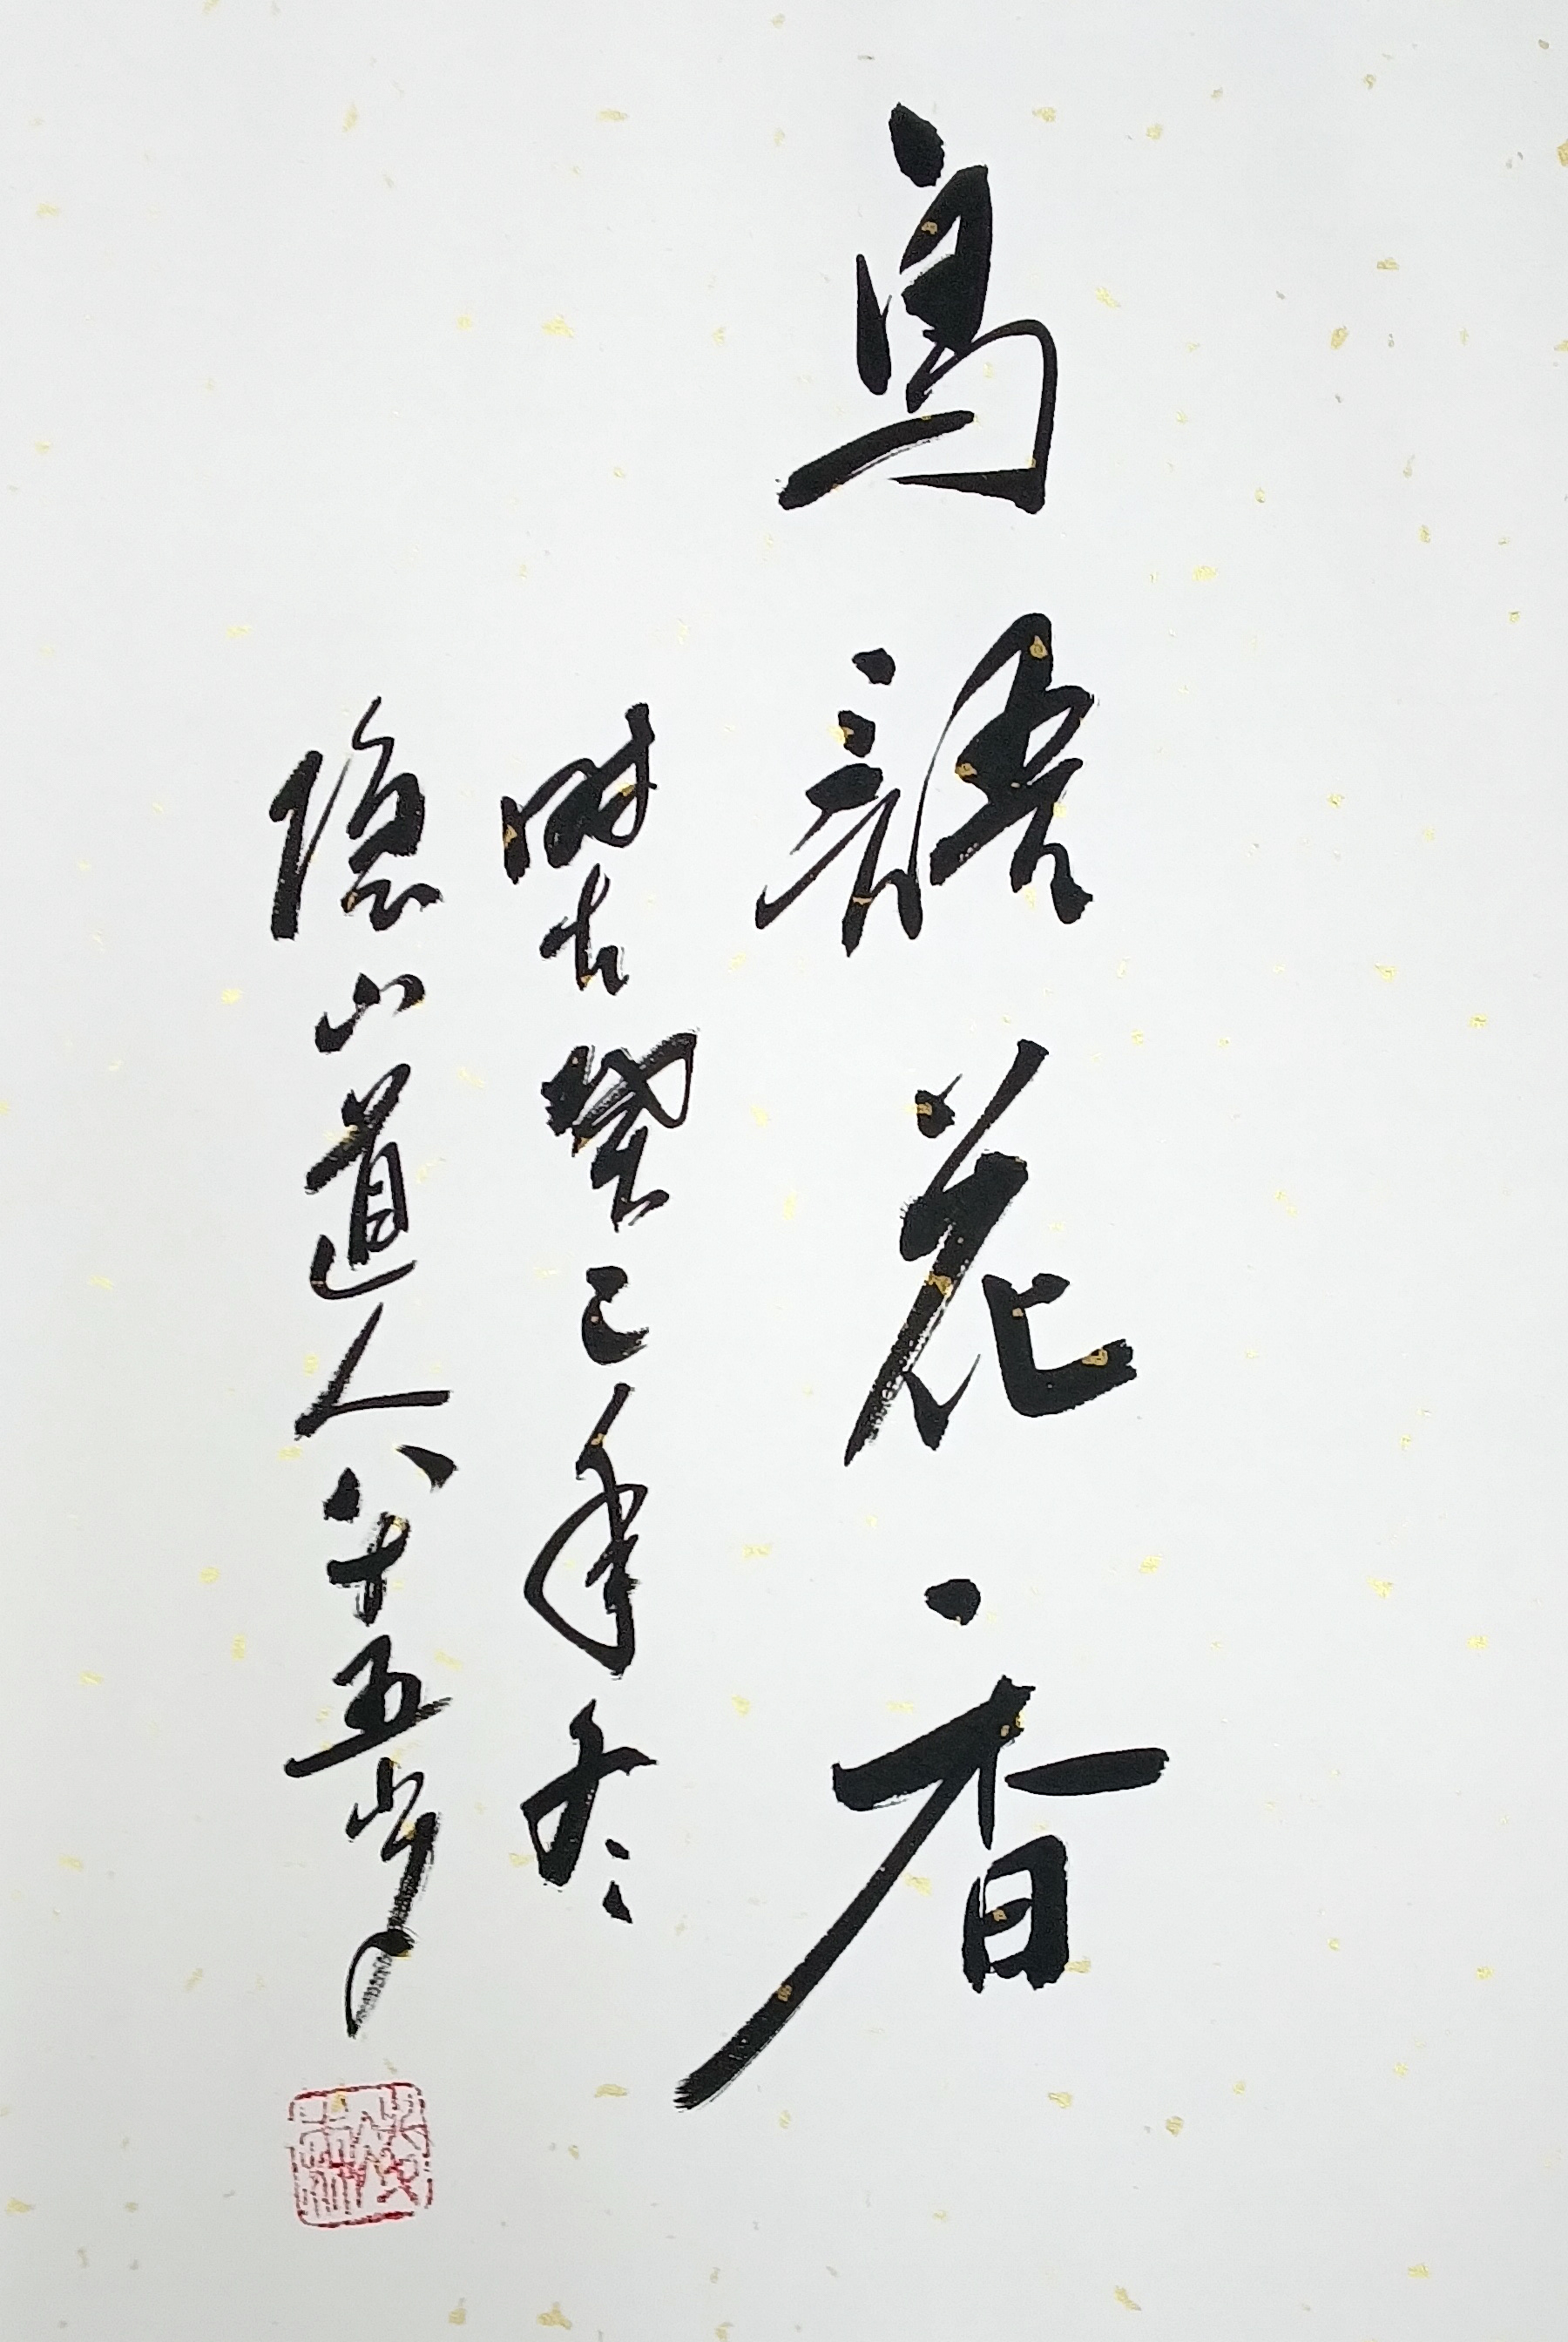 鳥語花香
時在癸巳年冬
隐山道人八十五岁